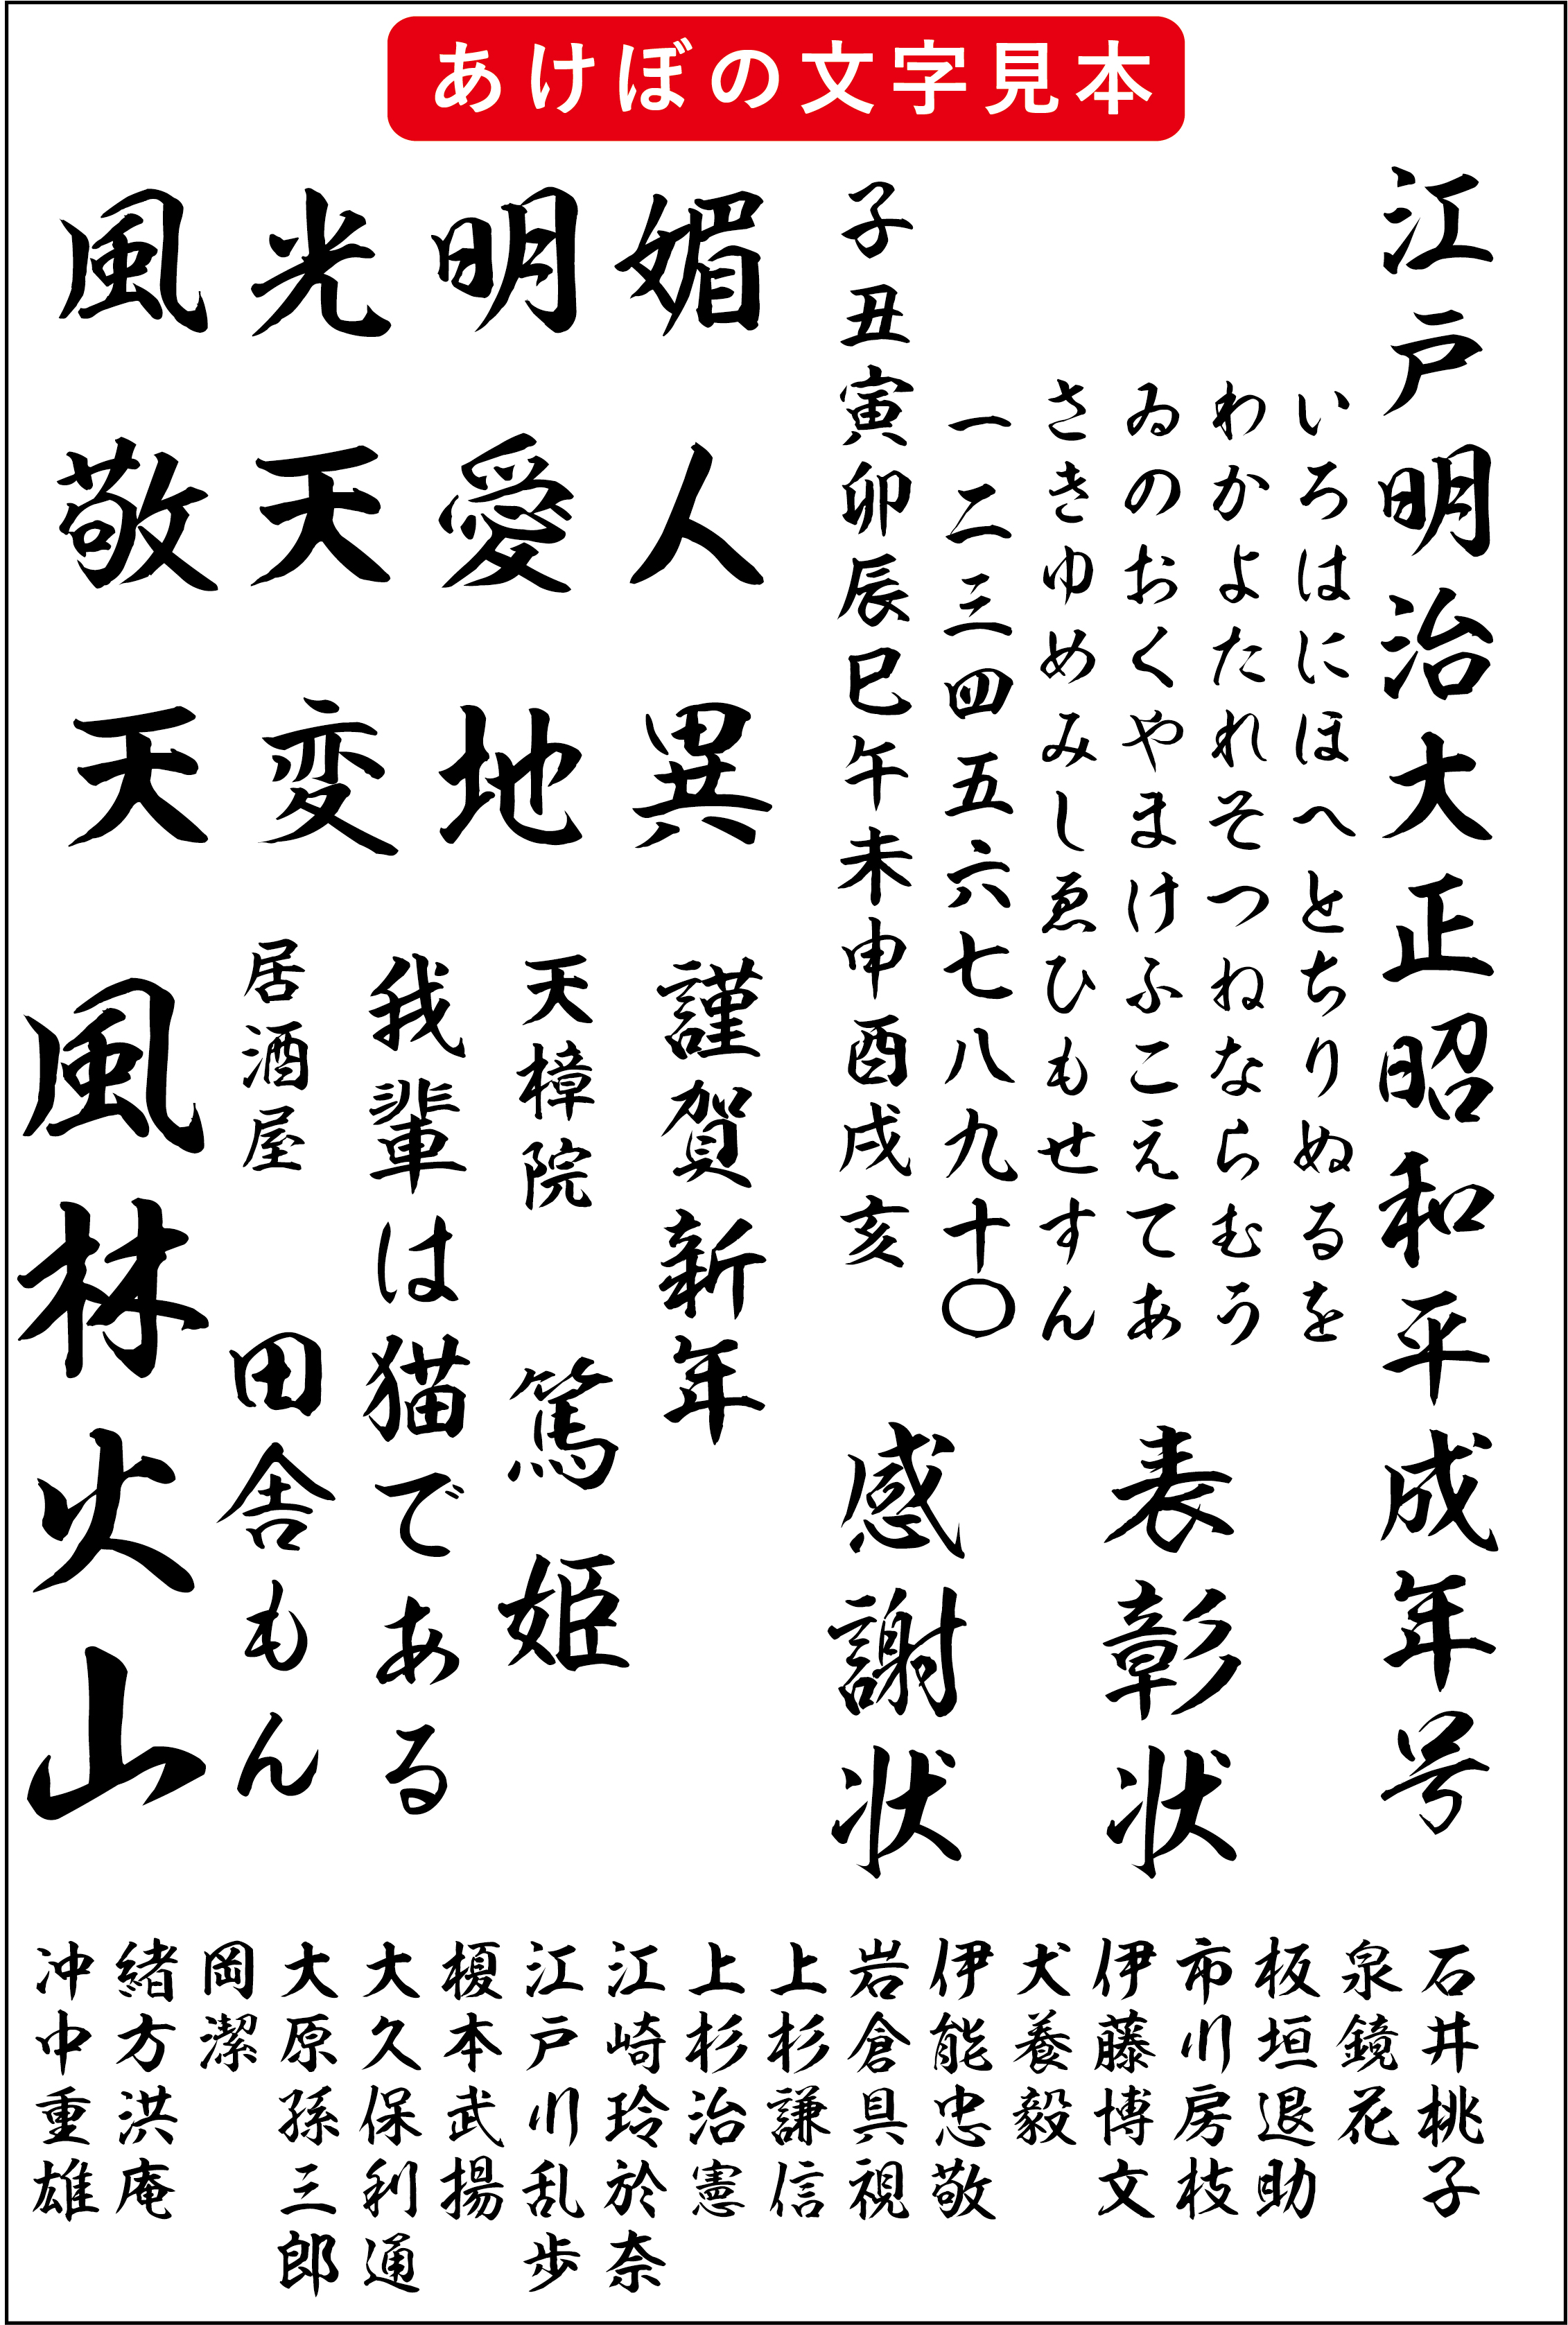 あけぼの文字見本
江戸明治大正昭和平成年号
いろはにほへとちりぬるを
わかよたれそつねならむう
ゐのおくやまけふこえてあ
さきゆめみしゑひもせすん
一二三四五六七八九十〇
子丑寅卯辰巳午未申酉戌亥
表彰状
感謝状
風光明媚
敬天愛人
天変地異
謹賀新年
天樟院
篤姫
我輩は猫である
居酒屋
田舎もん
風林火山
石井桃子
泉鏡花
板垣退助
市川房枝
伊藤博文
犬養毅
伊能忠敬
岩倉具視
上杉謙信
上杉治憲
江崎玲於奈
江戸川乱歩
榎本武揚
大久保利通
大原孫三郎
岡潔
緒方洪庵
沖中重雄